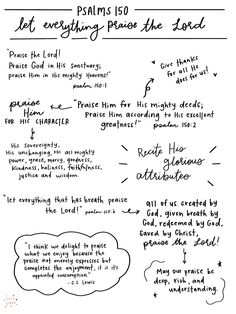 PSALMS 150
let everything praise the Lord
"Praise the Lord!
Praise God in His Sanctuary;
praise Him in His mighty Heavens!"
psalm 150:1
Give thanks
for all He
does for us!
praise
Him
FOR HIS CHARACTER
"Praise Him for His mighty deeds;
Praise Him according to His excellent
greatness!" psalm 150:2
His sovereignty,
His unchanging, His all mighty
power, grace, mercy, goodness,
kindness, holiness, faithfulness,
justice and wisdom
Recite His
glorious
attributes
"let everything that has breath praise
the Lord!" psalm 150:6
all of us created by
God, given breath by
God, redeemed by God,
Saved by Christ,
praise the Lord!
"I think we delight to praise
what we enjoy because the
praise not merely expresses but
completes the enjoyment; it is its
appointed consummation."
- C.S. Lewis
May our praise be
deep, rich, and
understanding.